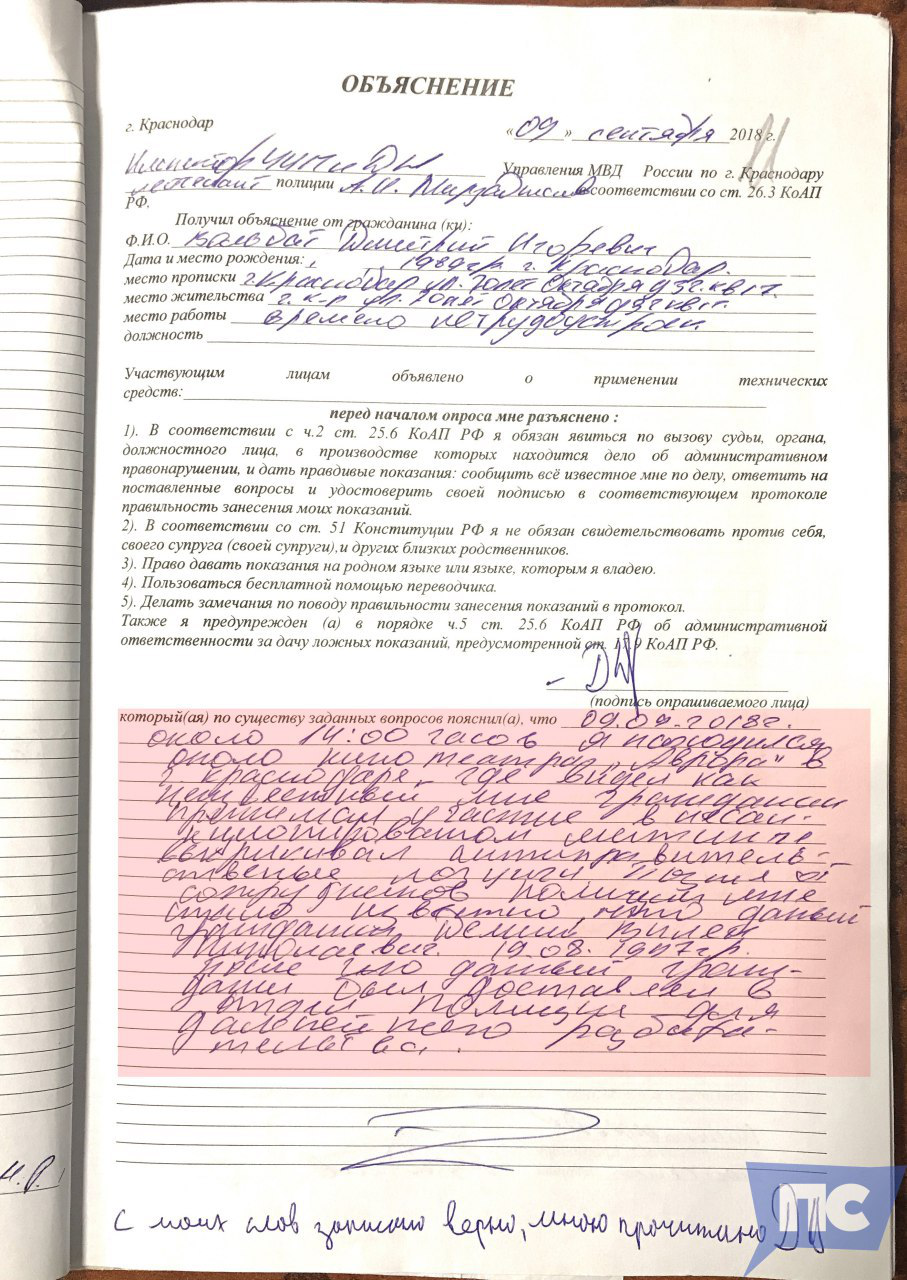 ОБЪЯСНЕНИЕ
г. Краснодар
«09» сентября 2018 г.
11
Управления МВД России по г. Краснодару
полиции А.И. соответствии со ст. 26.3 КоАП
РФ.
Получил объяснение от гражданина (ки):
Ф.И.О. Дмитрий Игоревич
Дата и место рождения: 1989 г.р. г. Краснодар.
место прописки г. Краснодар ул. 70 лет Октября
место жительства г. к-р ул. 70 лет Октября
место работы времено нетрудоустроен
должность
Участвующим лицам объявлено о применении технических
средств:
перед началом опроса мне разъяснено :
1). В соответствии с ч.2 ст. 25.6 КоАП РФ я обязан явиться по вызову судьи, органа,
должностного лица, в производстве которых находится дело об административном
правонарушении, и дать правдивые показания: сообщить всё известное мне по делу, ответить на
поставленные вопросы и удостоверить своей подписью в соответствующем протоколе
правильность занесения моих показаний.
2). В соответствии со ст. 51 Конституции РФ я не обязан свидетельствовать против себя,
своего супруга (своей супруги),и других близких родственников.
3). Право давать показания на родном языке или языке, которым я владею.
4). Пользоваться бесплатной помощью переводчика.
5). Делать замечания по поводу правильности занесения показаний в протокол.
Также я предупрежден (а) в порядке ч.5 ст. 25.6 КоАП РФ об административной
ответственности за дачу ложных показаний, предусмотренной ст. 17.9 КоАП РФ.
(подпись опрашиваемого лица)
который(ая) по существу заданных вопросов пояснил(а), что 09.09.2018г.
около 14:00 часов я находился
около кинотеатра „Аврора" в
г. краснодаре, где видел как
неизвестный мне гражданин
принимал участие в несан-
кционированом митинге
выкрикивал антиправитель-
ственые лозунги. Позже от
сотрудников полиции мне
стало известно, что даный
гражданин Демин Вилен
Николаевич. 19.08. г.р.
После чего данный граж-
данин был доставлен в
отдел полиции для
дальнейшего разбира-
тельства.
с моих слов записано верно, мною прочитано
ПС